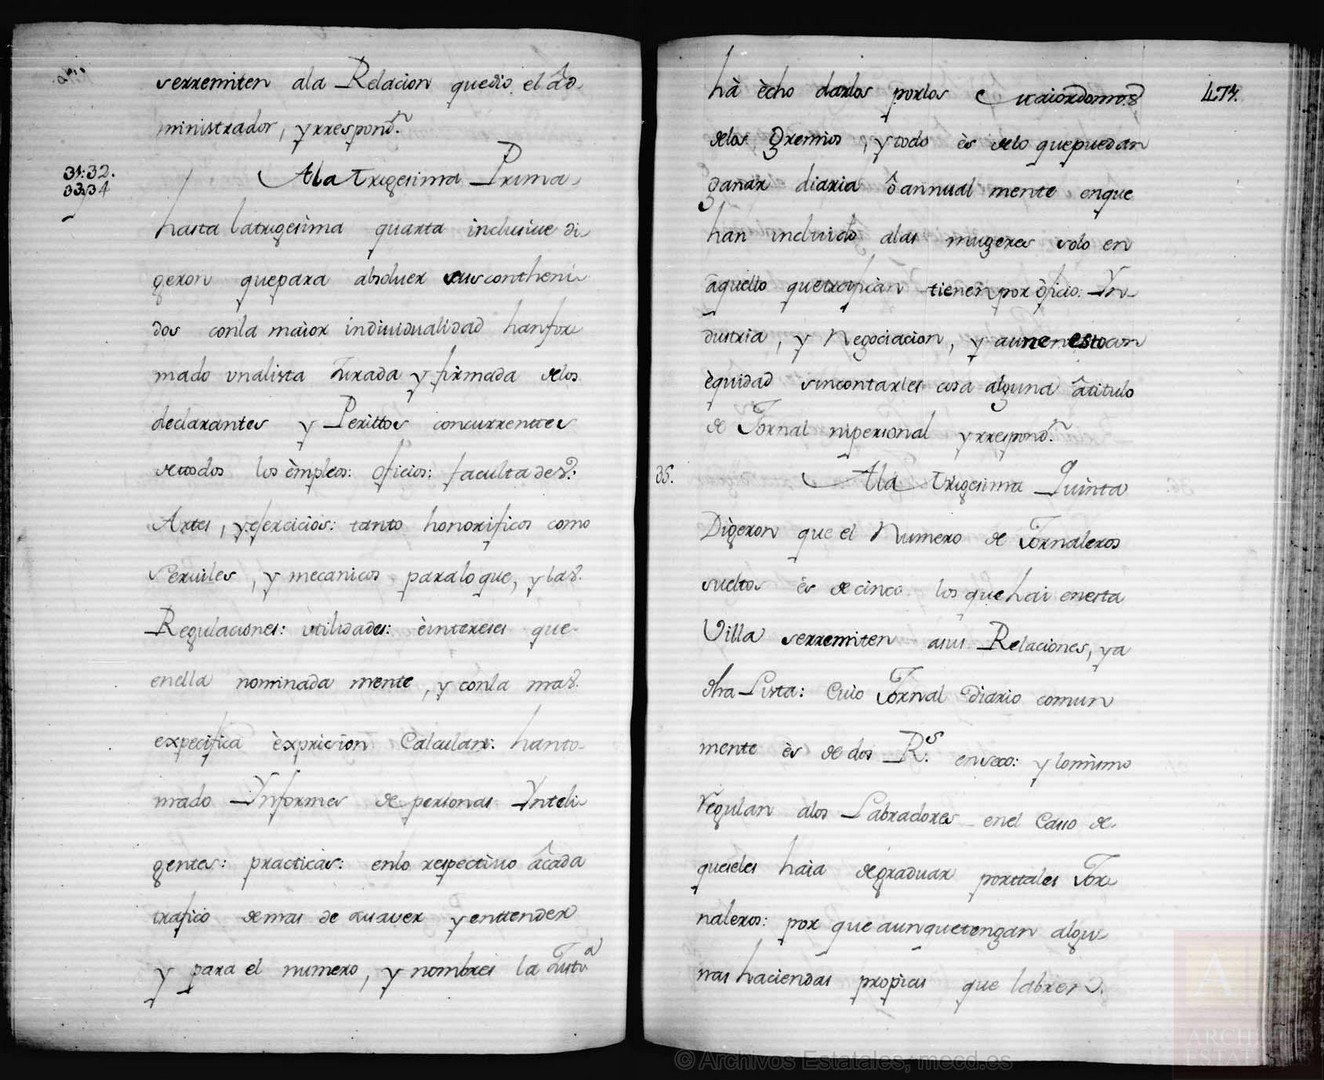 serremiten ala Relacion quedio el âd-
ministrador, y rrespond.n
31: 32.
33:34
Ala trigesima Prima,
hasta latrigesima quarta inclusiue di-
geron quepara absoluer sus contheni-
dos conla maior indiuidualidad hanfor
mado vnalista Jurada y firmada delos
declarantes y Perittos concurrentes
detodos los èmpleos: oficios: facultades:
Artes, y ejercicios: tanto honorificos como
seruiles, y mecanicos paraloque, y las
Regulaciones: vtilidades: èintereses que-
enella nominada mente, y conla mas
expecifica èxpricion Calculan: hanto-
mado Ynformes de personas Ynteli-
gentes: practicas: enlo respectiuo âcada
trafico demas de auer y enttender
y para el numero, y nombres la Justa
hà ècho darlos porlos Maiordomos
delos gremios, y todo ès delo quepuedan
ganar diaria ô annual mente enque
han incluido alas mugeres solo en
âquello quetrafican tienen por òficio: Yn-
dustria, y Negociacion, y aunenestocon
èquidad sincontarles cosa alguna âtitulo
de Jornal nipersonal y rrespond.n
35.
Ala trigesima Quinta
Digeron que el Numero de Jornaleros
sueltos ès de cinco los que hai enesta
Villa serremiten asus Relaciones, y a
dha Lista: Cuio Jornal diario comun
mente ès de dos R.s enseco: y lomismo
regulan alos Labradores enel Caso de
queseles haia degraduar porttales Jor
naleros: por que aunquetengan algu-
nas haciendas propias que labren.
473.
© Archivos Estatales, mecd.es
ARCHI
ESTAT